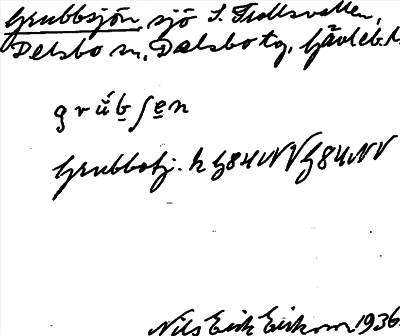 Grubbsjön, sjö S. Trollsvallen,
Delsbo sn, Delsbo tg, Gävleb.l.
grubsen
Grubbatj. k G84NV G84NV
Nils Erik Erikson 1936